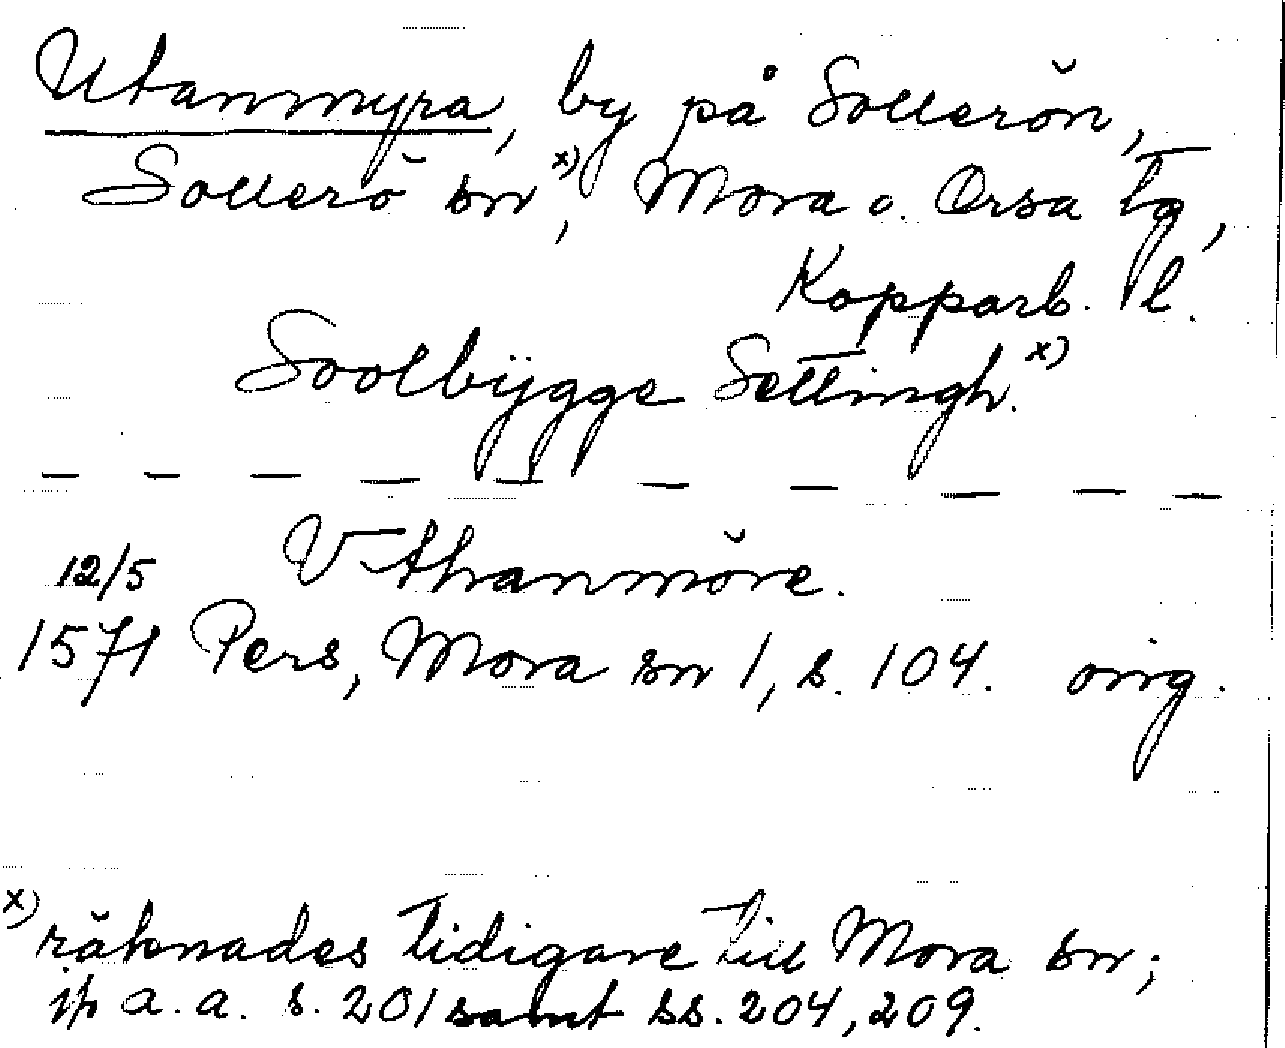 Utanmyra, by på Sollerön,
Sollerö sn x), Mora o. Orsa tg,
Kopparb. l.
Soolbÿgge Settingh. x)
— — — — — — — — — —
12/5 Vthanmöre.
1571 Pers, Mora sn 1, s. 104. orig.
x) räknades tidigare till Mora sn;
jfr a. a. s. 201 samt ss. 204, 209.